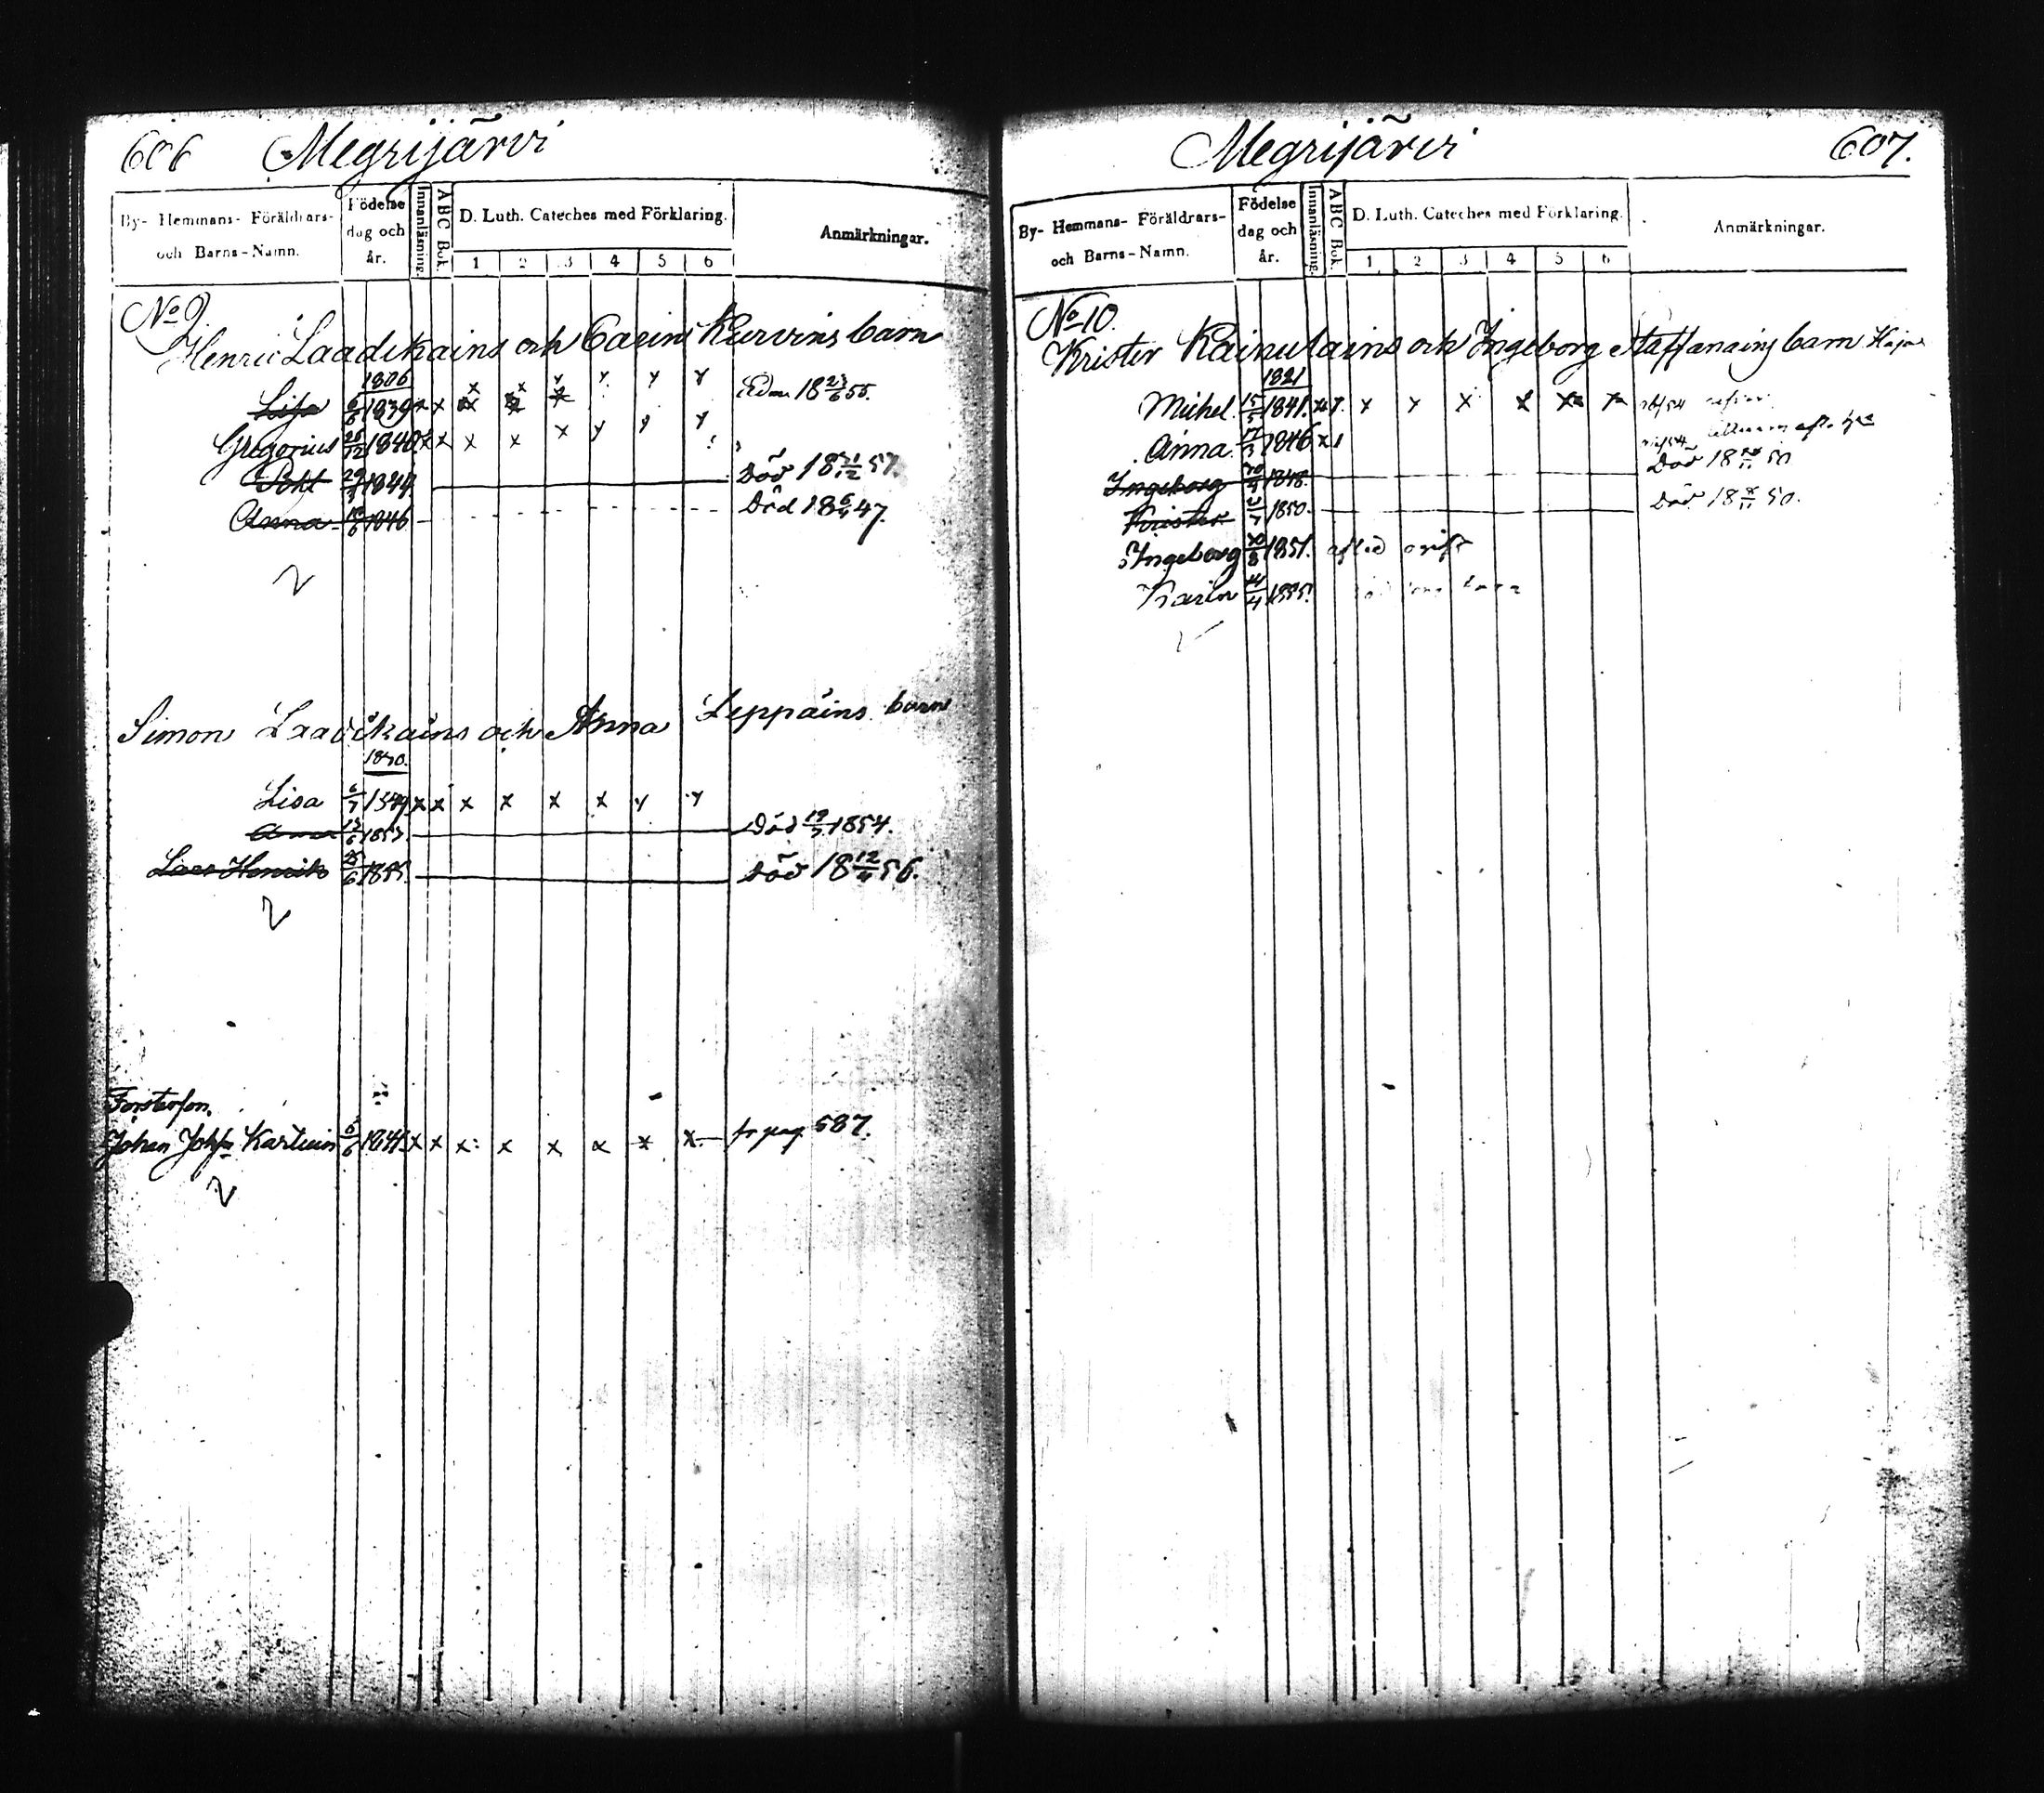 606 Megrijärvi
By- Hemmans- Föräldrars- och Barns-Namn.
Födelse dag och år.
Innanläsning.
ABC Bok.
D. Luth. Cateches med Förklaring.
1 2 3 4 5 6
Anmärkningar.
No 9
Henric Laadikains och Carin Kurvins barn
1806
Lisa 6/6 1839 x x Edm. 18 23/6 55.
Gregorius 25/12 1840 x x x x x y y y
29 1844 Död 18 31/12 57.
Anna 6 1846 Död 18 6/4 47.
Simon Laadikains och Anna Leppäins barn
Lisa 6/7 1849 x x x x x x y y
Anna 13/6 1853. Död 19/7 1854.
Lars Henrik 25/6 1855. Död 18 12/4 56.
Fosterson.
Johan Johs Kartuin 6/6 1841 x x x x x x x x fr pag 587.
Megrijärvi 607.
By- Hemmans- Föräldrars- och Barns-Namn.
Födelse dag och år.
Innanläsning.
ABC Bok.
D. Luth. Cateches med Förklaring.
1 2 3 4 5 6
Anmärkningar.
No 10.
Krister Kainulains och Ingeborg Staffanains barn
1821
Michel 15 1841. x x x y x x x x
Anna 17/3 1846 x
Ingeborg 1848. Död 18 50
Krister 7 1850. Död 18 50.
Ingeborg 20/8 1851.
Karin 14/4 1855.